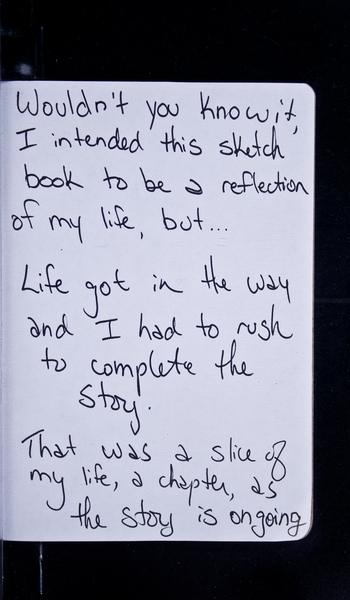 Wouldn't you know it,
I intended this sketch
book to be a reflection
of my life, but...
Life got in the way
and I had to rush
to complete the
story.
That was a slice of
my life, a chapter, as
the story is ongoing